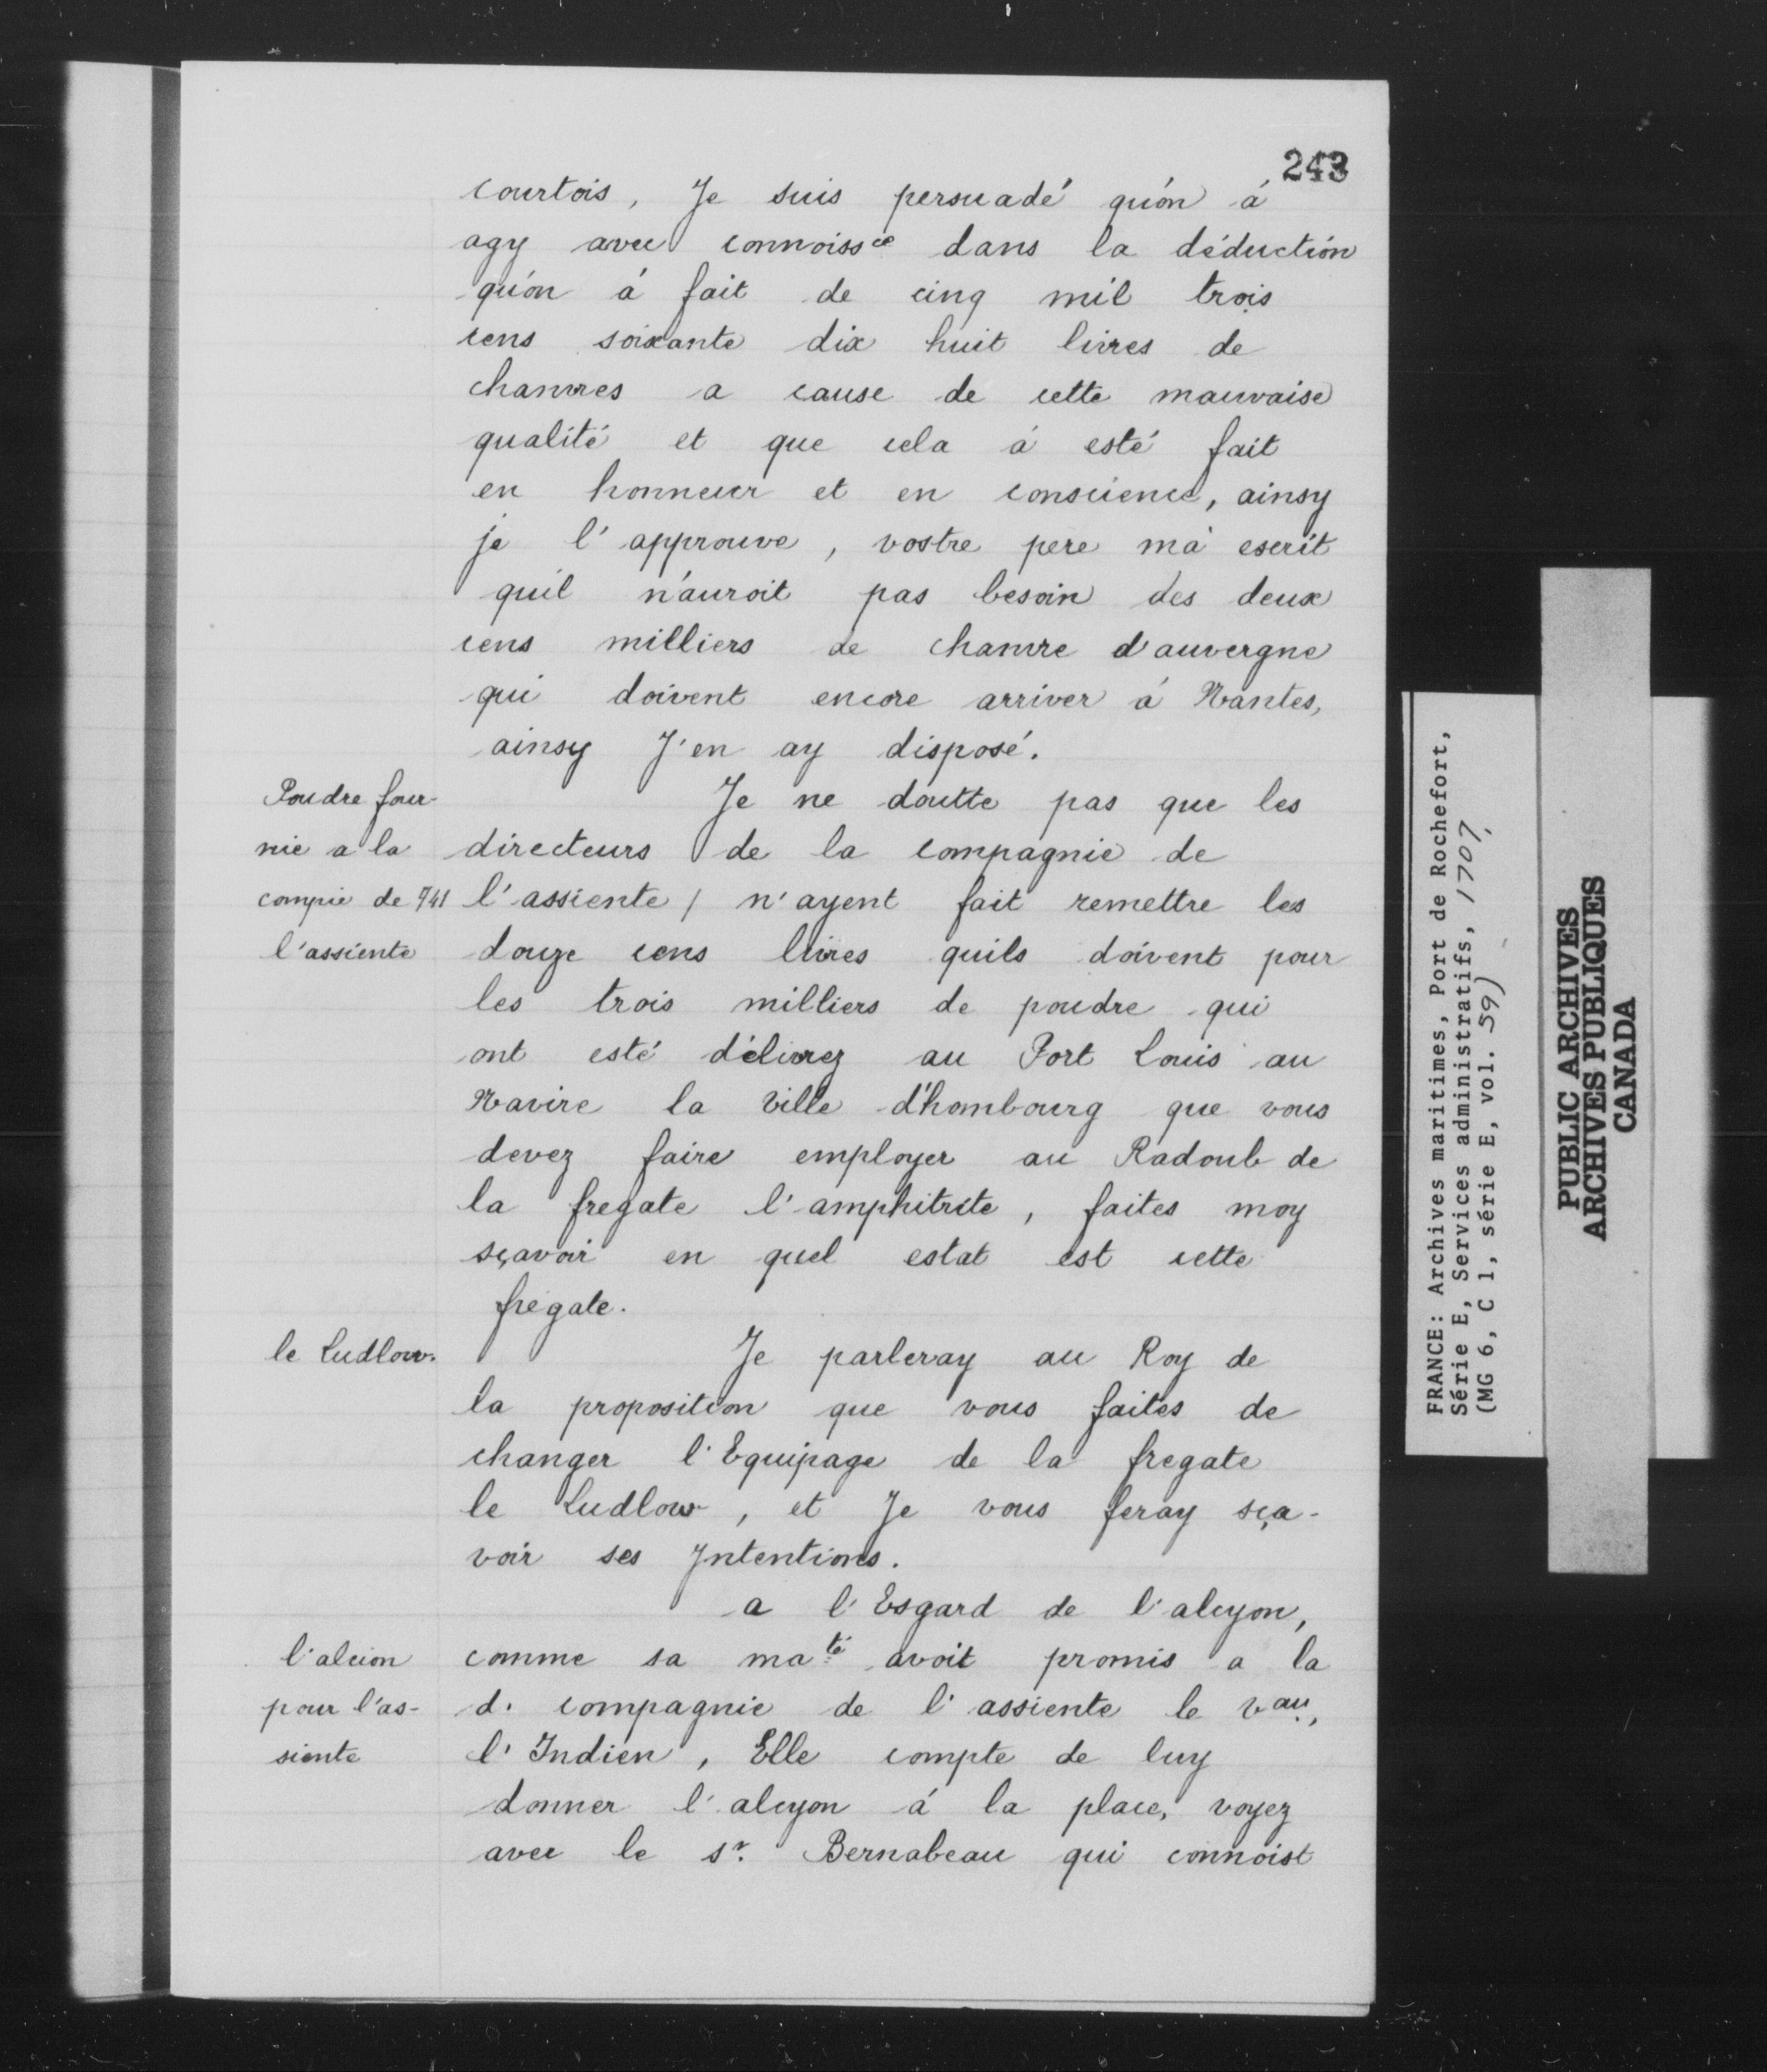 243
courtois, Je suis persuadé qu'on á
agy avec connoiss.ce dans la déduction
qu'on á fait de cinq mil trois
cens soixante dix huit livres de
chanvres a cause de cette mauvaise
qualité et que cela á esté fait
en honneur et en conscience, ainsy
je l'approuve, vostre pere m'a escrit
qu'il n'auroit pas besoin des deux
cens milliers de chanvre d'auvergne
qui doivent encore arriver á Nantes,
ainsy J'en ay disposé.
Poudre four-
nie a la
compie de 741
l'assiente
Je ne doutte pas que les
directeurs de la compagnie de
l'assiente / n'ayent fait remettre les
douze cens livres quils doivent pour
les trois milliers de poudre qui
ont esté délivrez au Port Louis au
Navire la Ville d'hombourg que vous
devez faire employer au Radoub de
la fregate l'amphitrite, faites moy
sçavoir en quel estat est cette
fregate.
le Ludlow.
Je parleray au Roy de
la proposition que vous faites de
changer l'Equipage de la fregate
le Ludlow, et Je vous feray sça-
voir ses Intentions.
a l'Esgard de l'alcyon,
l'alcion
pour l'as-
siente
comme sa ma.té avoit promis a la
d. compagnie de l'assiente le vau,
l'Indien, Elle compte de luy
donner l'alcyon á la place, voyez
avec le s.r Bernabeau qui connoist
FRANCE: Archives maritimes, Port de Rochefort,
Série E, Services administratifs, 1707,
(MG 6, C 1, série E, vol. 59)
PUBLIC ARCHIVES
ARCHIVES PUBLIQUES
CANADA